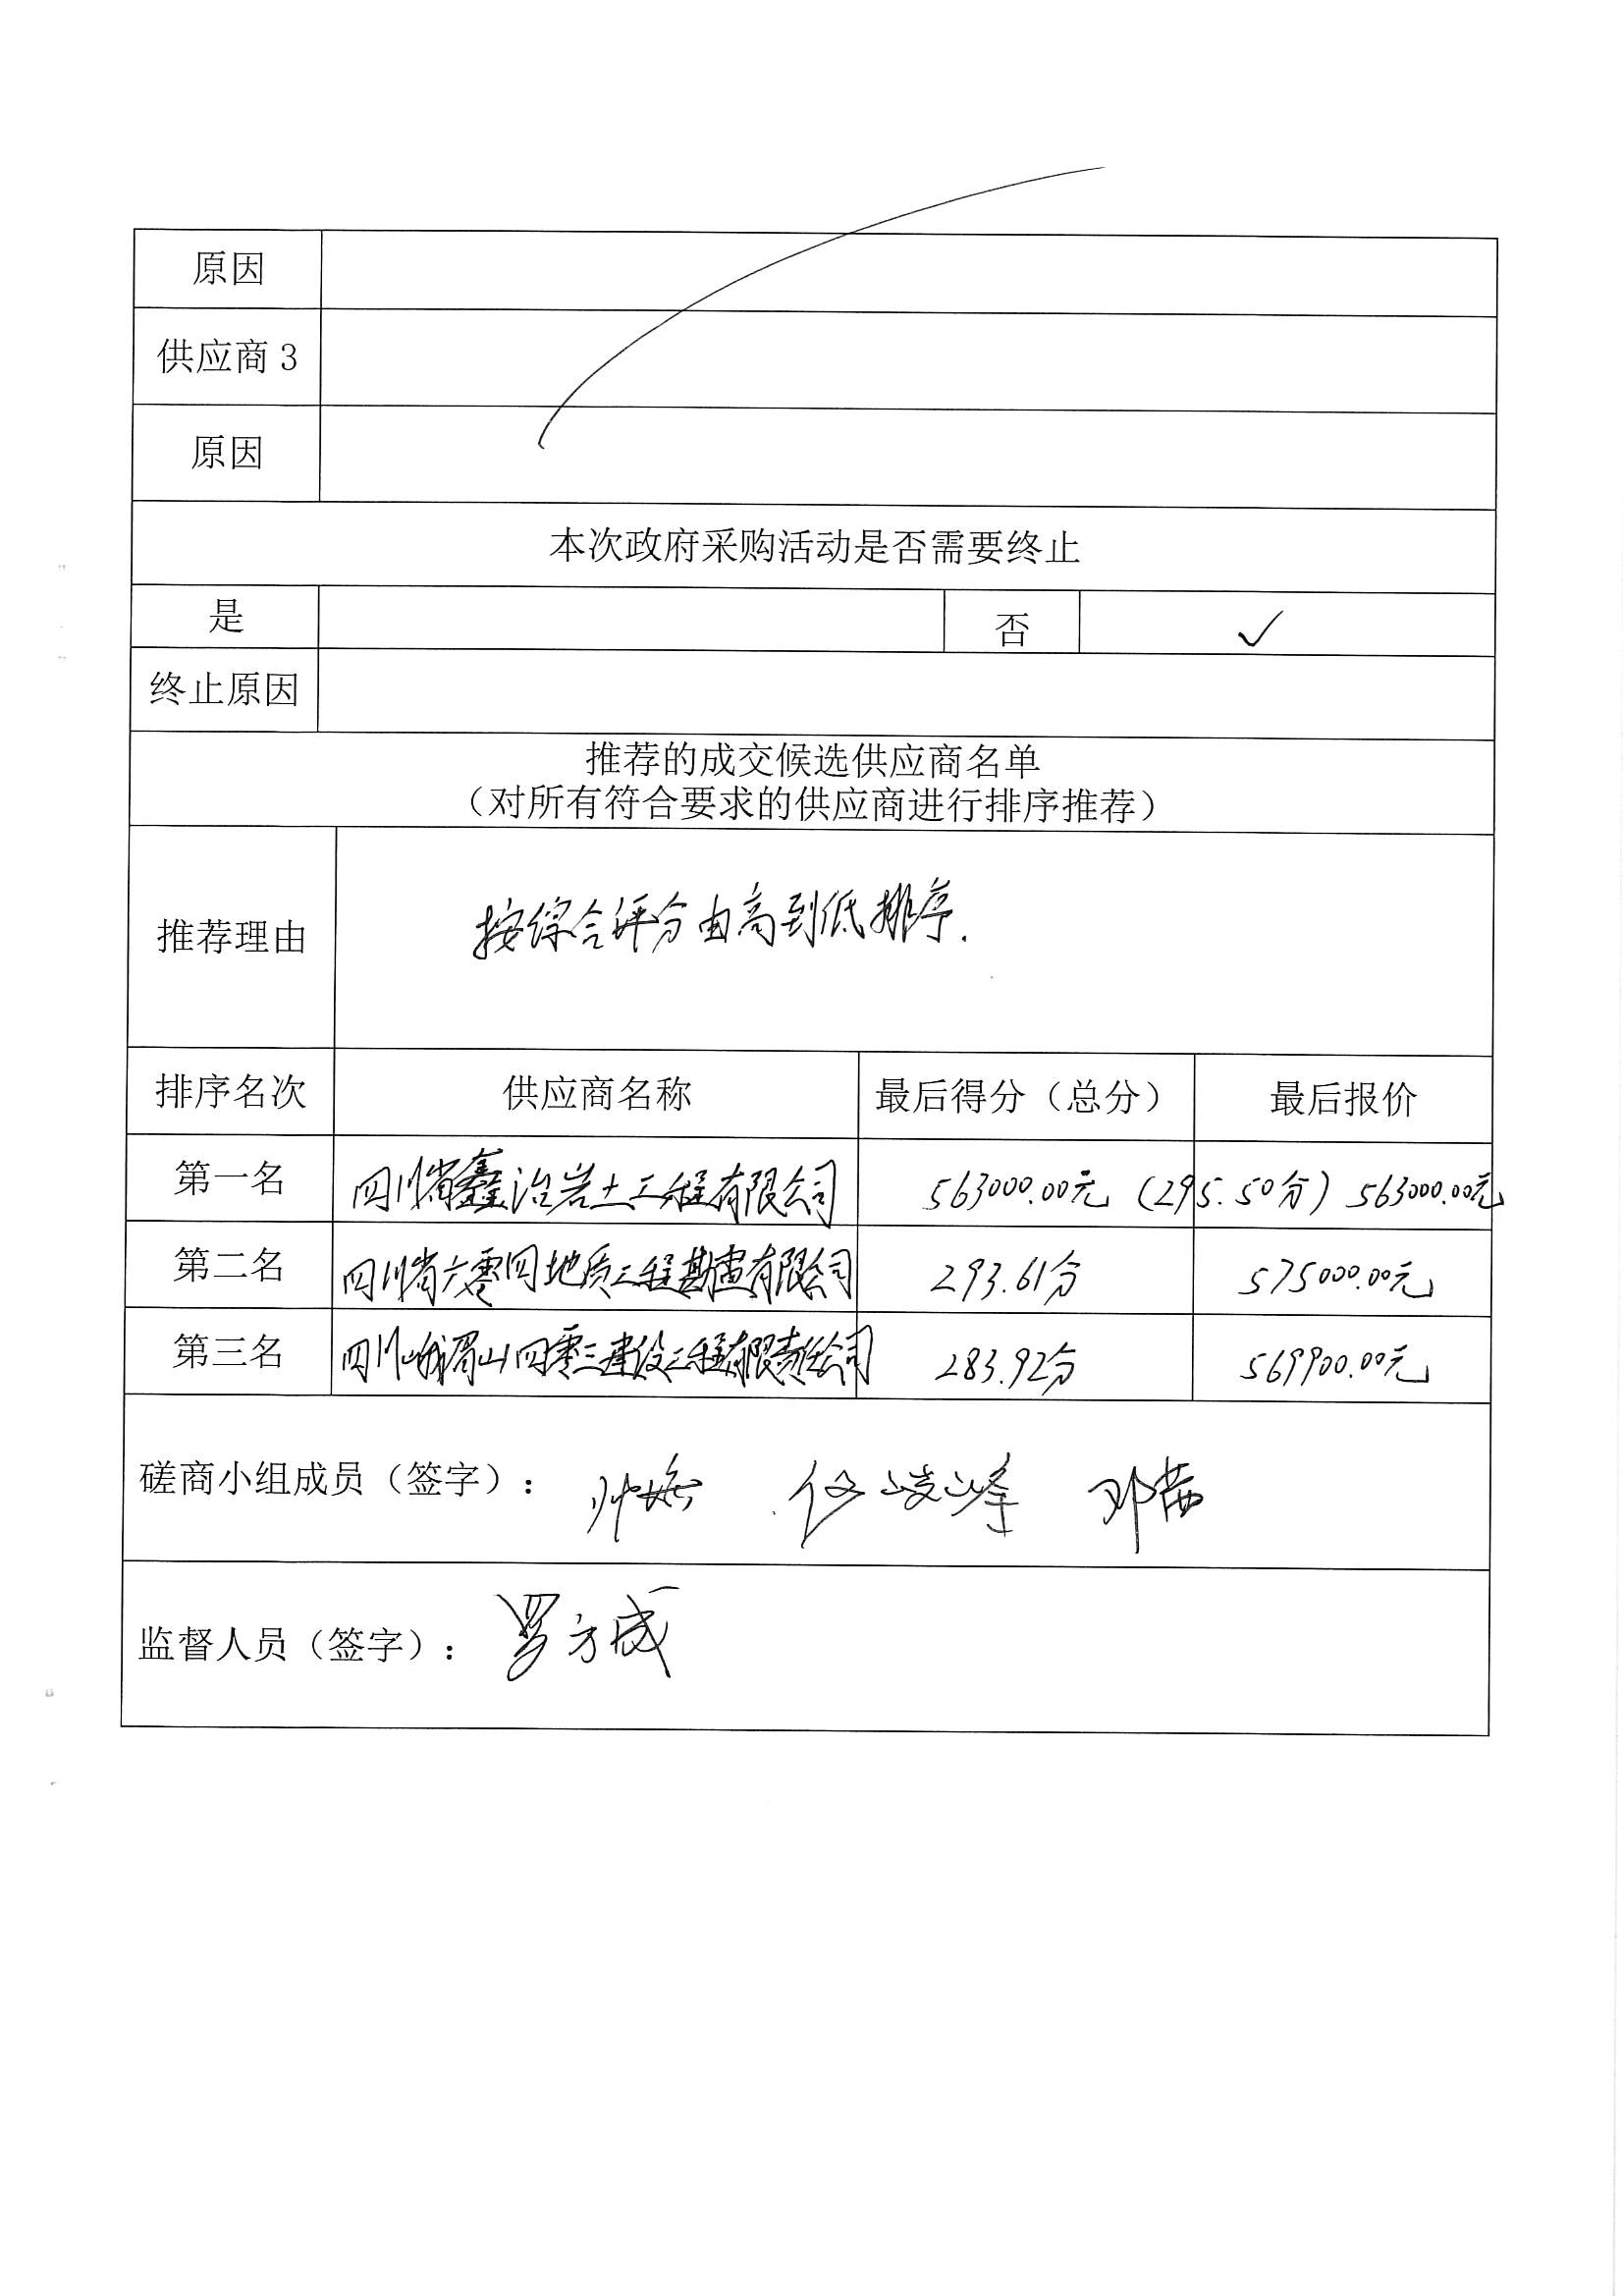 原因
供应商 3
原因
本次政府采购活动是否需要终止
是 否 ✓
终止原因
推荐的成交候选供应商名单
（对所有符合要求的供应商进行排序推荐）
推荐理由 按综合评分由高到低排序.
排序名次 供应商名称 最后得分（总分） 最后报价
第一名 四川省鑫冶岩土工程有限公司 563000.00元（295.50分） 563000.00元
第二名 四川省六零四地质工程勘查有限公司 293.61分 575000.00元
第三名 四川峨眉山四零三建设工程有限责任公司 283.92分 569900.00元
磋商小组成员（签字）： 邓茜
监督人员（签字）： 罗方成